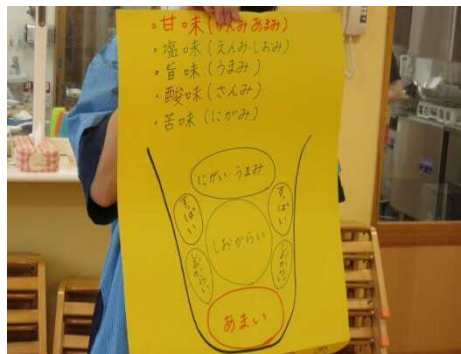 ・甘味(かんみ あまみ)
・塩味(えんみ・しおみ)
・旨味(うまみ)
・酸味(さんみ)
・苦味(にがみ)
にがい・うまみ
すっぱい
すっぱい
しおからい
しおからい
しおからい
あまい